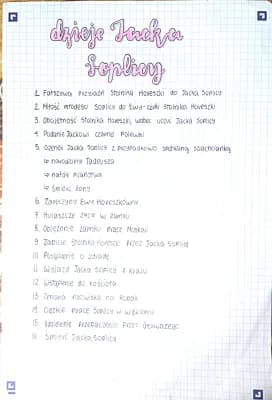 dzieje Jacka
Soplicy
1. Fałszywa przyjaźń Stolnika Horeszki do Jacka Soplicy
2. Miłość młodego Soplicy do Ewy-córki Stolnika Horeszki
3. Obojętność Stolnika Horeszki, wobec uczuć Jacka Soplicy
4. Podanie Jackowi czarnej polewki
5. Ożenek Jacka Soplicy z przypadkowo spotkaną szlachcianką
↳ narodziny Tadeusza
↳ nałóg pijaństwa
↳ śmierć żony
6. Zaręczyny Ewy Horeszkówny
7. Hulaszcze życie w zamku
8. Oblężenie zamku przez Moskali
9. Zabicie Stolnika Horeszki przez Jacka Soplicę
10. Posądzenie o zdradę
11. Wyjazd Jacka Soplicy z kraju
12. Wstąpienie do kościoła
13. Zmiana nazwiska na Robak
14. Ciężkie prace Soplicy w więzieniu
15. przebaczenia przez Gerwazego
16. Śmierć Jacka Soplicy